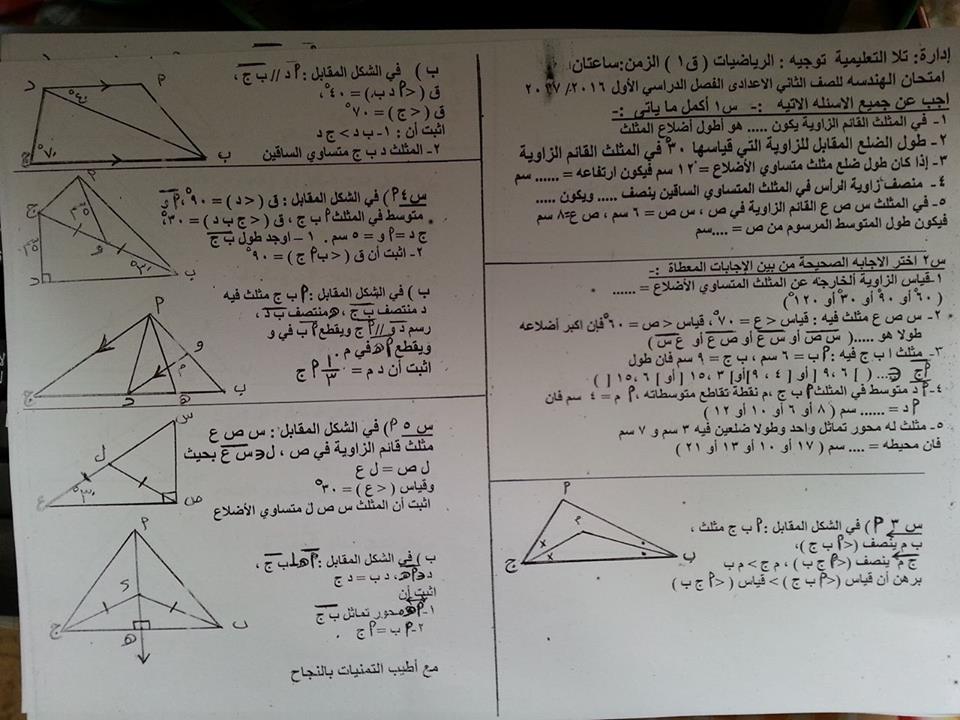 إدارة: تلا التعليمية توجيه : الرياضيات ( ق١ ) الزمن:ساعتان
امتحان الهندسه للصف الثاني الاعدادى الفصل الدراسي الأول ٢٠١٦/
اجب عن جميع الاسئله الاتيه :- س١ أكمل ما ياتى :-
١- في المثلث القائم الزاوية يكون ..... هو أطول أضلاع المثلث
٢- طول الضلع المقابل للزاوية التي قياسها ٣٠° في المثلث القائم الزاوية
٣- إذا كان طول ضلع مثلث متساوي الأضلاع = ١٢ سم فيكون ارتفاعه = ...... سم
٤- منصف زاوية الرأس في المثلث المتساوي الساقين ينصف ..... ويكون .....
٥- في المثلث س ص ع القائم الزاوية في ص ، س ص = ٦ سم ، ص ع=٨ سم
فيكون طول المتوسط المرسوم من ص = ....سم
س٢ اختر الاجابه الصحيحة من بين الإجابات المعطاة :-
١-قياس الزاوية الخارجه عن المثلث المتساوي الأضلاع = ......
( ٦٠ أو ٩٠ أو ٣٠ أو ١٢٠° )
٢- س ص ع مثلث فيه : قياس> ع = ٧٠° ، قياس< ص = ٦٠° فإن اكبر أضلاعه
طولا هو .....( س ص أو س ع أو ص ع أو ع س )
٣- مثلث ا ب ج فيه : م ب = ٦ سم ، ب ج = ٩ سم فان طول
م ج ∋... ( ] ٦ ، ٩ [ أو [ ٤ ، ٩ [أو] ٣ ، ١٥ [ أو [ ٦ ، ١٥ [ )
٤- م د متوسط في المثلث م ب ج ، م نقطة تقاطع متوسطاته ، م م = ٤ سم فان
م د = ...... سم ( ٨ أو ٦ أو ١٠ أو ١٢ )
٥- مثلث له محور تماثل واحد وطولا ضلعين فيه ٣ سم و ٧ سم
فان محيطه = .... سم ( ١٧ أو ١٠ أو ١٣ أو ٢١ )
س ٣ م ) في الشكل المقابل : م ب ج مثلث ،
ب م ينصف (< م ب ج )،
ج م ينصف (< م ج ب ) ، م ج > م ب
برهن أن قياس (< م ب ج ) > قياس (< م ج ب )
م
م
ب
ج
ب ) في الشكل المقابل : م د // ب ج ،
ق (< م د ب ) = ٤٠° ،
ق (< ج ) = ٧٠°
اثبت أن : ١- ب د > ج د
٢- المثلث د ب ج متساوي الساقين
م
د
٤٠°
٧٠°
ب
ج
س٤ م ) في الشكل المقابل : ق (< د ) = ٩٠° ، م و
متوسط في المثلث م ب ج ، ق (< ج ب د ) = ٣٠° ،
ج د = م و = ٥ سم . ١ – اوجد طول ب ج
٢- اثبت أن ق (< ب م ج ) = ٩٠°
م
ج
٥سم
٥سم
و
٣٠°
د
ب
ب ) في الشكل المقابل : م ب ج مثلث فيه
د منتصف ب ج ، ه منتصف ب د ،
رسم د و // م ج ويقطع م ب في و
ويقطع م ه في م .
اثبت أن د م = ١/٣ م ج
م
و
م
ب
ه
د
ج
س ٥ م ) في الشكل المقابل : س ص ع
مثلث قائم الزاوية في ص ، ل ∋ س ع بحيث
ل ص = ل ع
وقياس (< ع ) = ٣٠°
اثبت أن المثلث س ص ل متساوي الأضلاع
س
ل
٣٠°
ع
ص
ب ) في الشكل المقابل : م ه ⊥ ب ج ،
د ∋ م ه ، د ب = د ج
اثبت أن
١- م ه محور تماثل ب ج
٢- م ب = م ج
م
د
ب
ه
ج
مع أطيب التمنيات بالنجاح